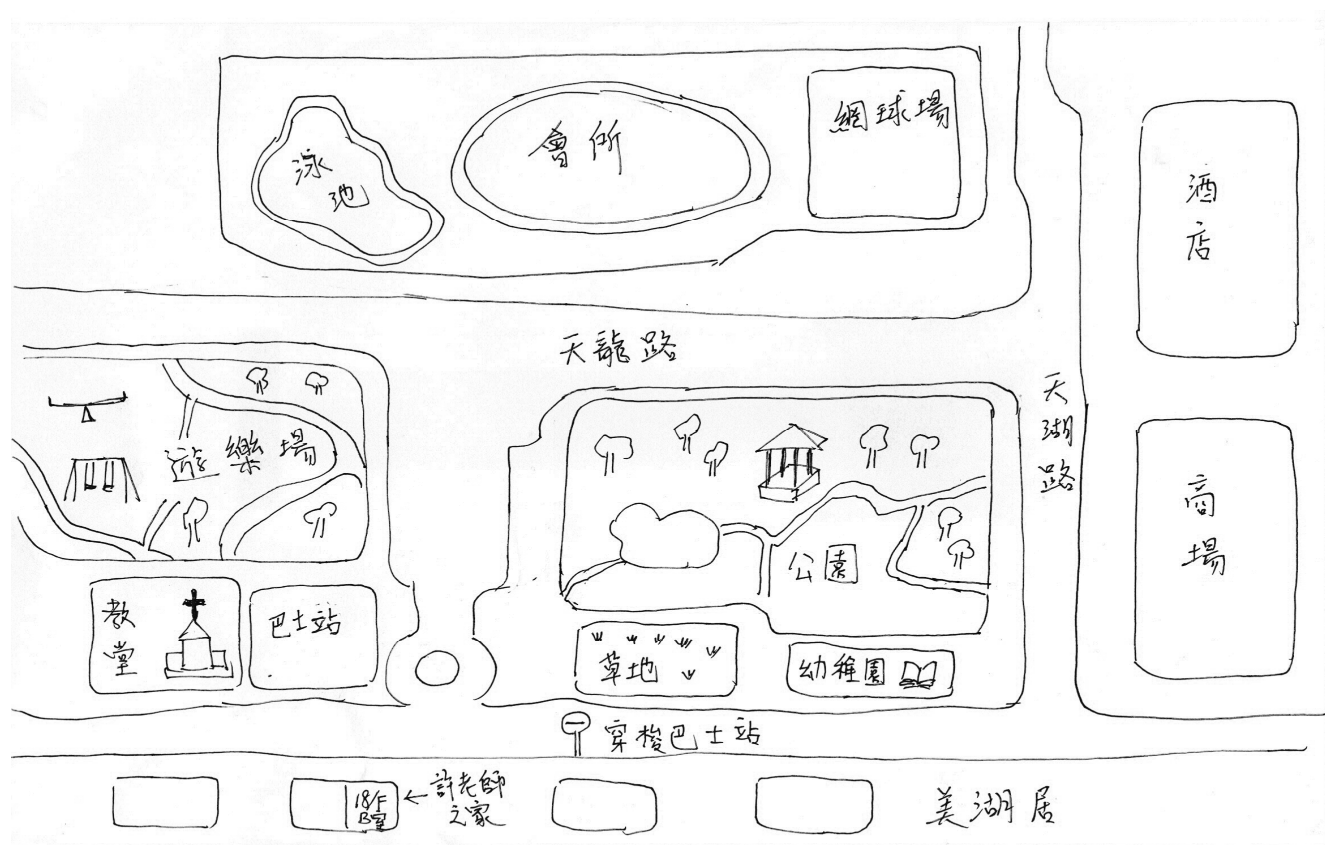 泳池
會所
網球場
酒店
天龍路
天湖路
遊樂場
公園
商場
教堂
巴士站
草地
幼稚園
穿梭巴士站
18/F
B室
←許老師
之家
美湖居